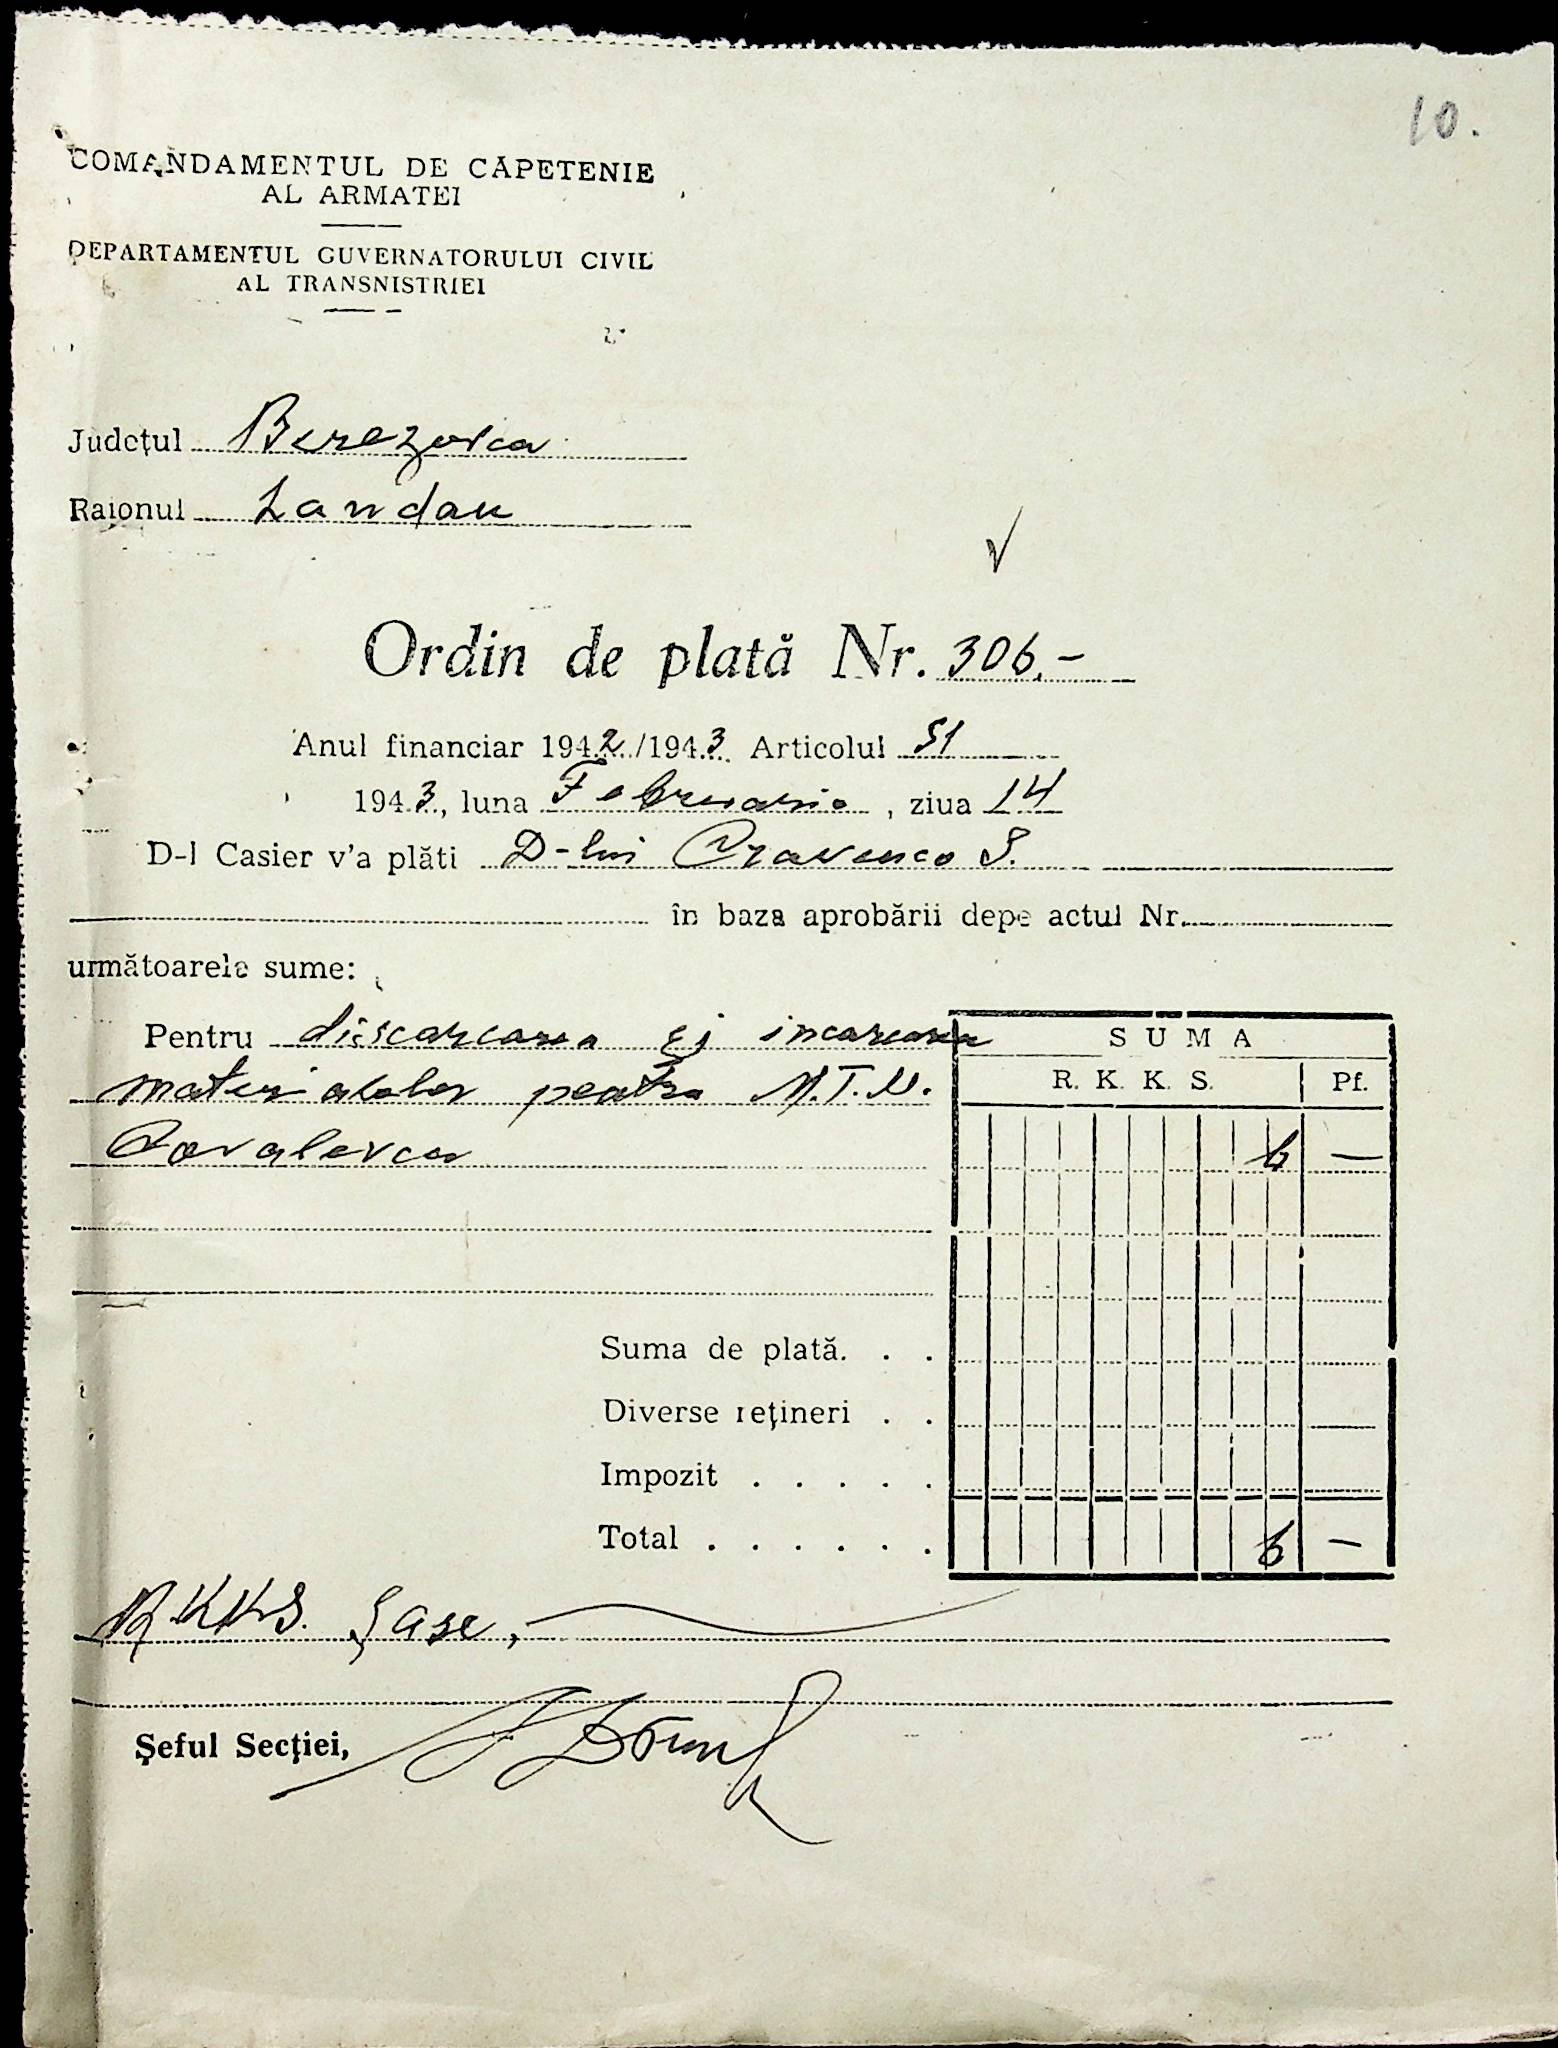 10.
COMANDAMENTUL DE CĂPETENIE
AL ARMATEI
DEPARTAMENTUL GUVERNATORULUI CIVIL
AL TRANSNISTRIEI
Județul Berezovca
Raionul Landau
Ordin de plată Nr. 306.-
Anul financiar 1942/1943 Articolul 51
1943, luna Februarie, ziua 14
D-l Casier v'a plăti D-lui Cravenco S.
în baza aprobării depe actul Nr.
următoarele sume:
Pentru discarcarea și incarcarea
materialelor pentru M.T.N.
Covalevca
SUMA
R. K. K. S. Pf.
6 —
Suma de plată. . .
Diverse rețineri . .
Impozit . . . . .
Total . . . . . . 6 —
RKKS. Șase,
Șeful Secției,